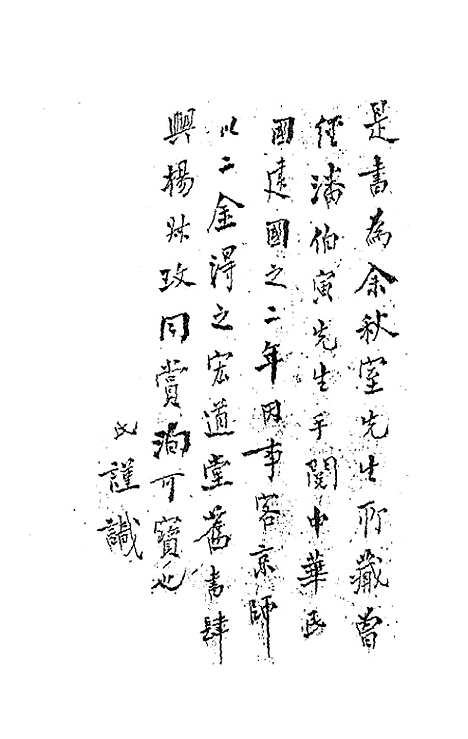 是書為余秋室先生所藏曾
經潘伯寅先生手閱中華民
國建國之二年因事客京師
以二金得之宏道堂舊書肆
與楊攷同賞洵可寶也
民謹識